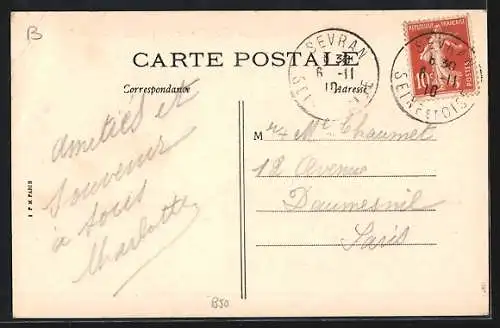 B
CARTE POSTALE
Correspondance
Adresse
SEVRAN
9 30
6 -11
10
SEINE ET OISE
REPUBLIQUE FRANÇAISE
POSTES
10c
SEVRAN
9 30
6 -11
10
SEINE ET OISE
Amitiés et
Souvenir
à tous
Charlotte
M et Me Chaumet
12 Avenue
Daumesnil
Paris
PARIS
B50